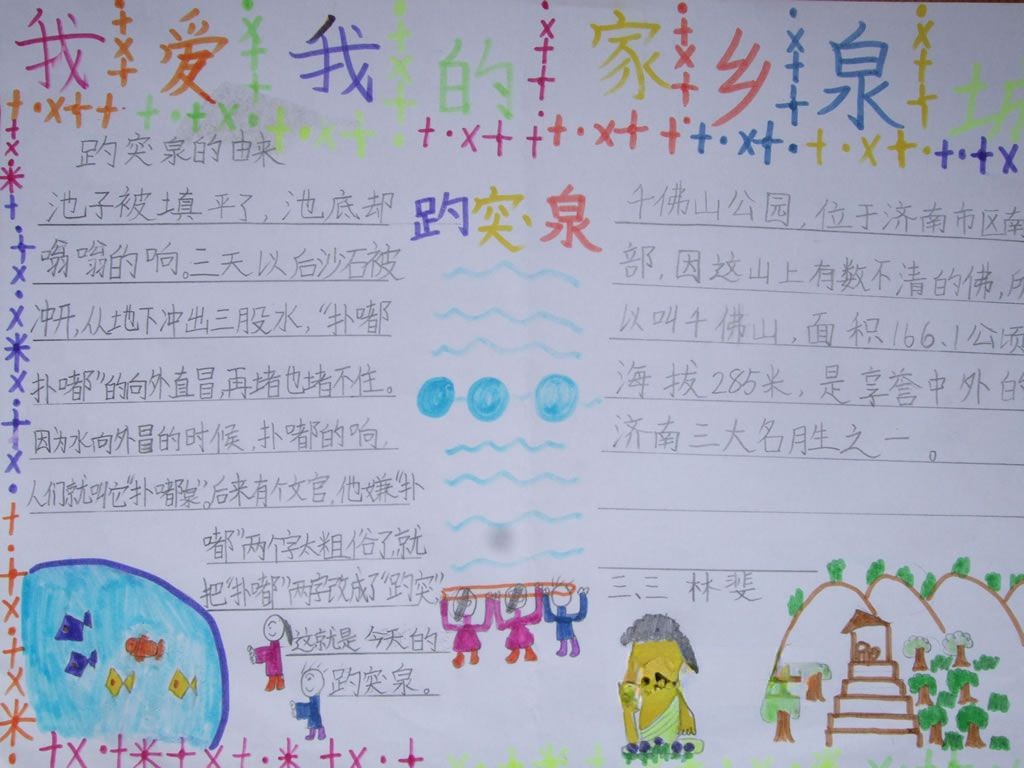 我爱我的家乡泉城
趵突泉的由来
池子被填平了，池底却
嗡嗡的响。三天以后沙石被
冲开，从地下冲出三股水，“扑嘟
扑嘟”的向外直冒，再堵也堵不住。
因为水向外冒的时候，扑嘟的响，
人们就叫它“扑嘟泉”。后来有个文官，他嫌“扑
嘟”两个字太粗俗了，就
把“扑嘟”两字改成了“趵突”
这就是今天的
趵突泉。
趵突泉
千佛山公园，位于济南市区南
部，因这山上有数不清的佛，所
以叫千佛山，面积166.1公顷
海拔285米，是享誉中外的
济南三大名胜之一。
三、三 林斐